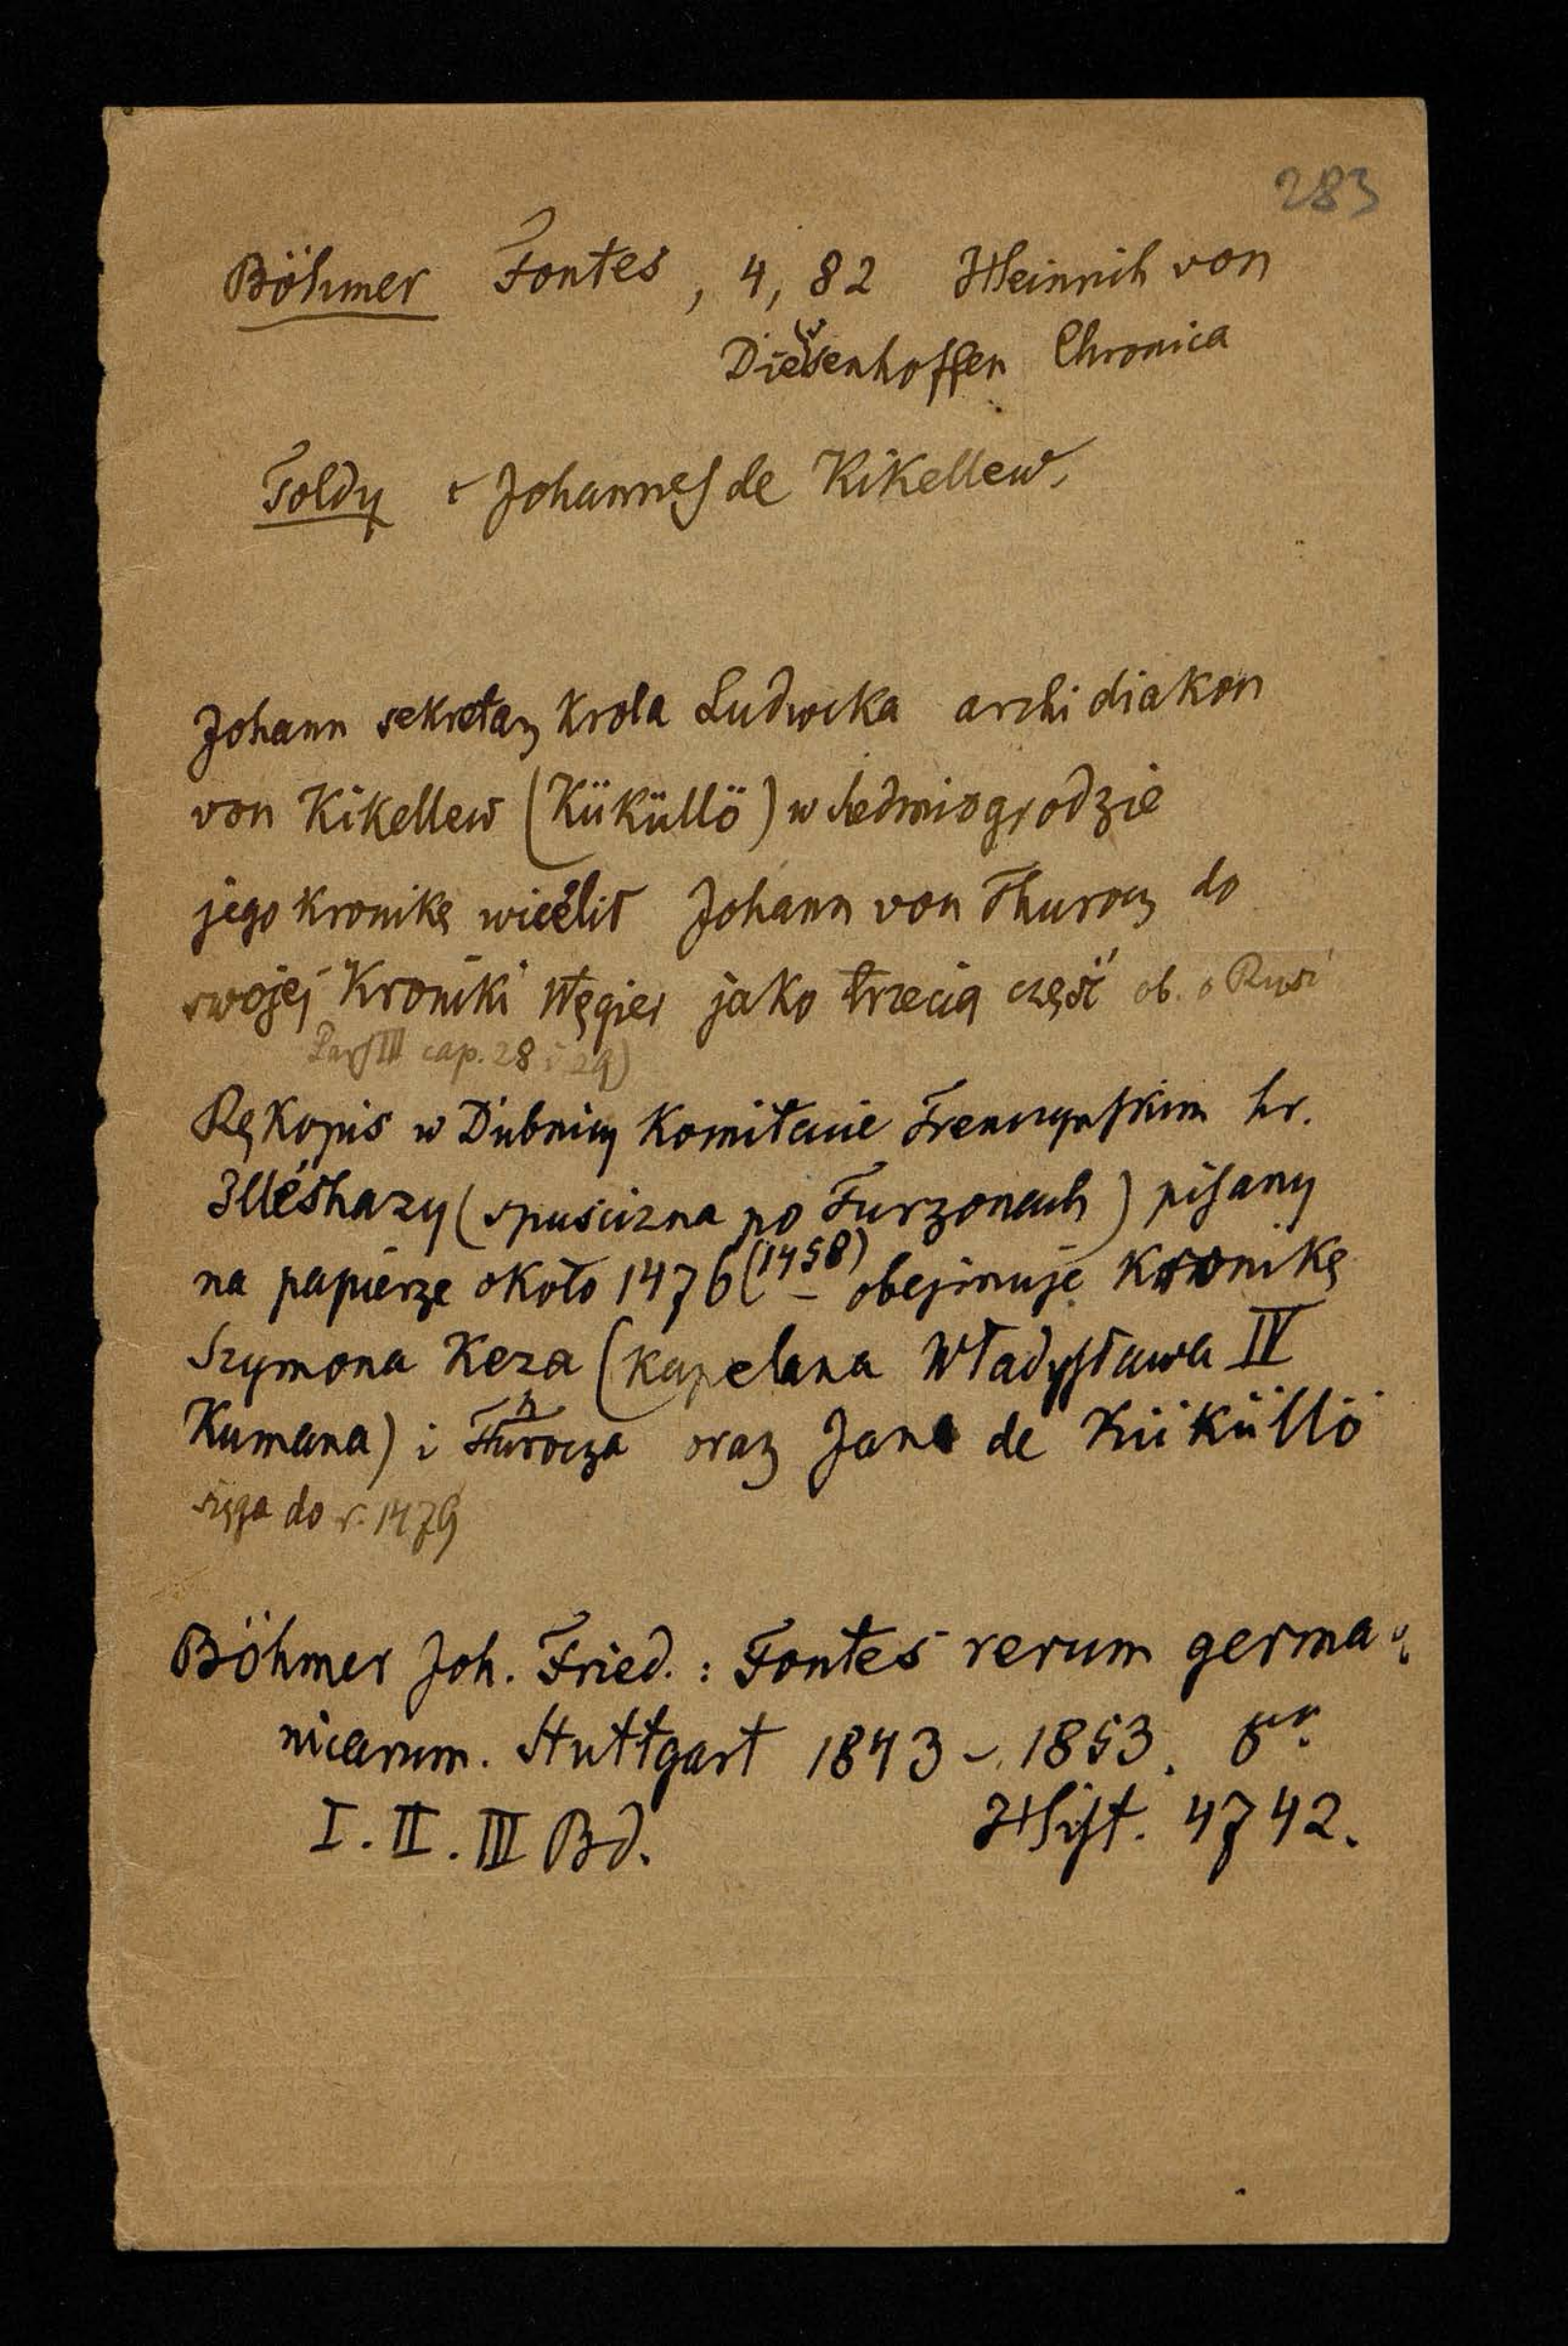 283
Böhmer Fontes, 4, 82 Heinrich von
Diesenhoffen Chronica
Toldy Johannes de Kikellew.
Johann sekretarz Krola Ludwika archidiakon
von Kikellew (Küküllö) w Siedmiogrodzie
jego Kronikę wcielił Johann von Thurocz do
swojej Kroniki Węgier jako trzecią część ob. o Rusi
Pars III cap. 28 i 29)
Rękopis w Dubnicy Komitacie Trenczyńskim hr.
Illésházy (spuścizna po Turzonach) pisany
na papierze około 1476 (1458) obejmuje Kronikę
Szymona Keza (Kapelana Władysława IV
Kumana) i Thurocza oraz Jana de Küküllö
sięga do r. 1479
Böhmer Joh. Fried. : Fontes rerum germa
nicarum. Stuttgart 1843 - 1853.
I. II. III Bd. Hist. 4742.